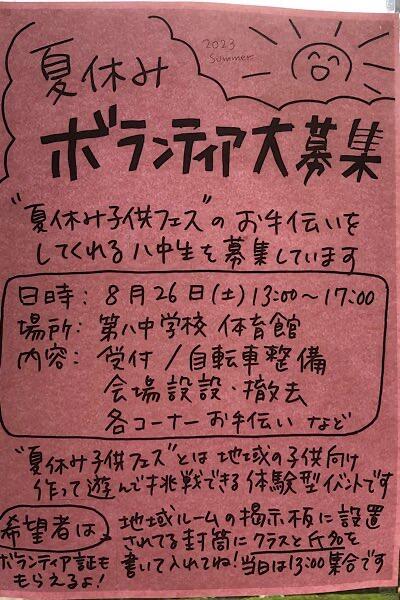 2023
Summer
夏休み
ボランティア大募集
"夏休み子供フェス"のお手伝いを
してくれる八中生を募集しています
日時: 8月26日(土)13:00～17:00
場所: 第八中学校 体育館
内容: 受付/自転車整備
会場設設・撤去
各コーナーお手伝い など
"夏休み子供フェス"とは地域の子供向け
作って遊んで挑戦できる体験型イベントです
希望者は
地域ルームの掲示板に設置
されてる封筒にクラスと氏名を
書いて入れてね! 当日は13:00集合です
ボランティア証も
もらえるよ!